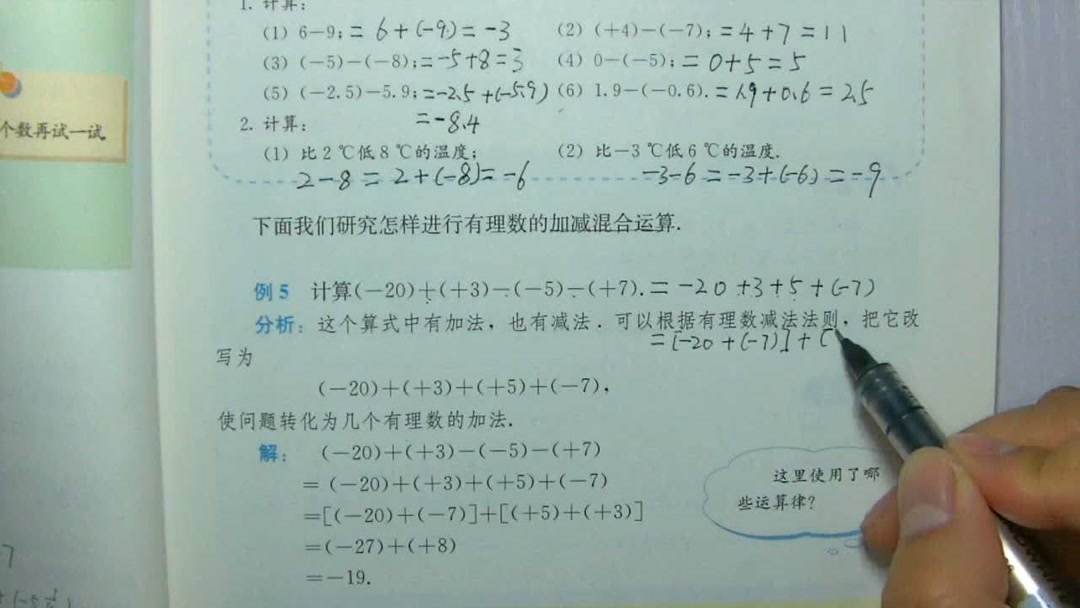 1. 计算：
(1) 6－9；= 6+(-9)=-3 (2) (＋4)－(－7)；=4+7=11
(3) (－5)－(－8)；=-5+8=3 (4) 0－(－5)；=0+5=5
(5) (－2.5)－5.9；=-2.5+(-5.9) (6) 1.9－(－0.6).=1.9+0.6=2.5
=-8.4
个数再试一试.
2. 计算：
(1) 比 2 ℃低 8 ℃的温度； (2) 比－3 ℃低 6 ℃的温度.
2-8=2+(-8)=-6 -3-6=-3+(-6)=-9
下面我们研究怎样进行有理数的加减混合运算.
例 5 计算(－20)＋(＋3)－(－5)－(＋7).=-20+3+5+(-7)
分析：这个算式中有加法，也有减法．可以根据有理数减法法则，把它改
=[-20+(-7)]+[
写为
(－20)＋(＋3)＋(＋5)＋(－7)，
使问题转化为几个有理数的加法.
解： (－20)＋(＋3)－(－5)－(＋7)
＝(－20)＋(＋3)＋(＋5)＋(－7)
＝[(－20)＋(－7)]＋[(＋5)＋(＋3)]
＝(－27)＋(＋8)
＝－19.
这里使用了哪
些运算律？